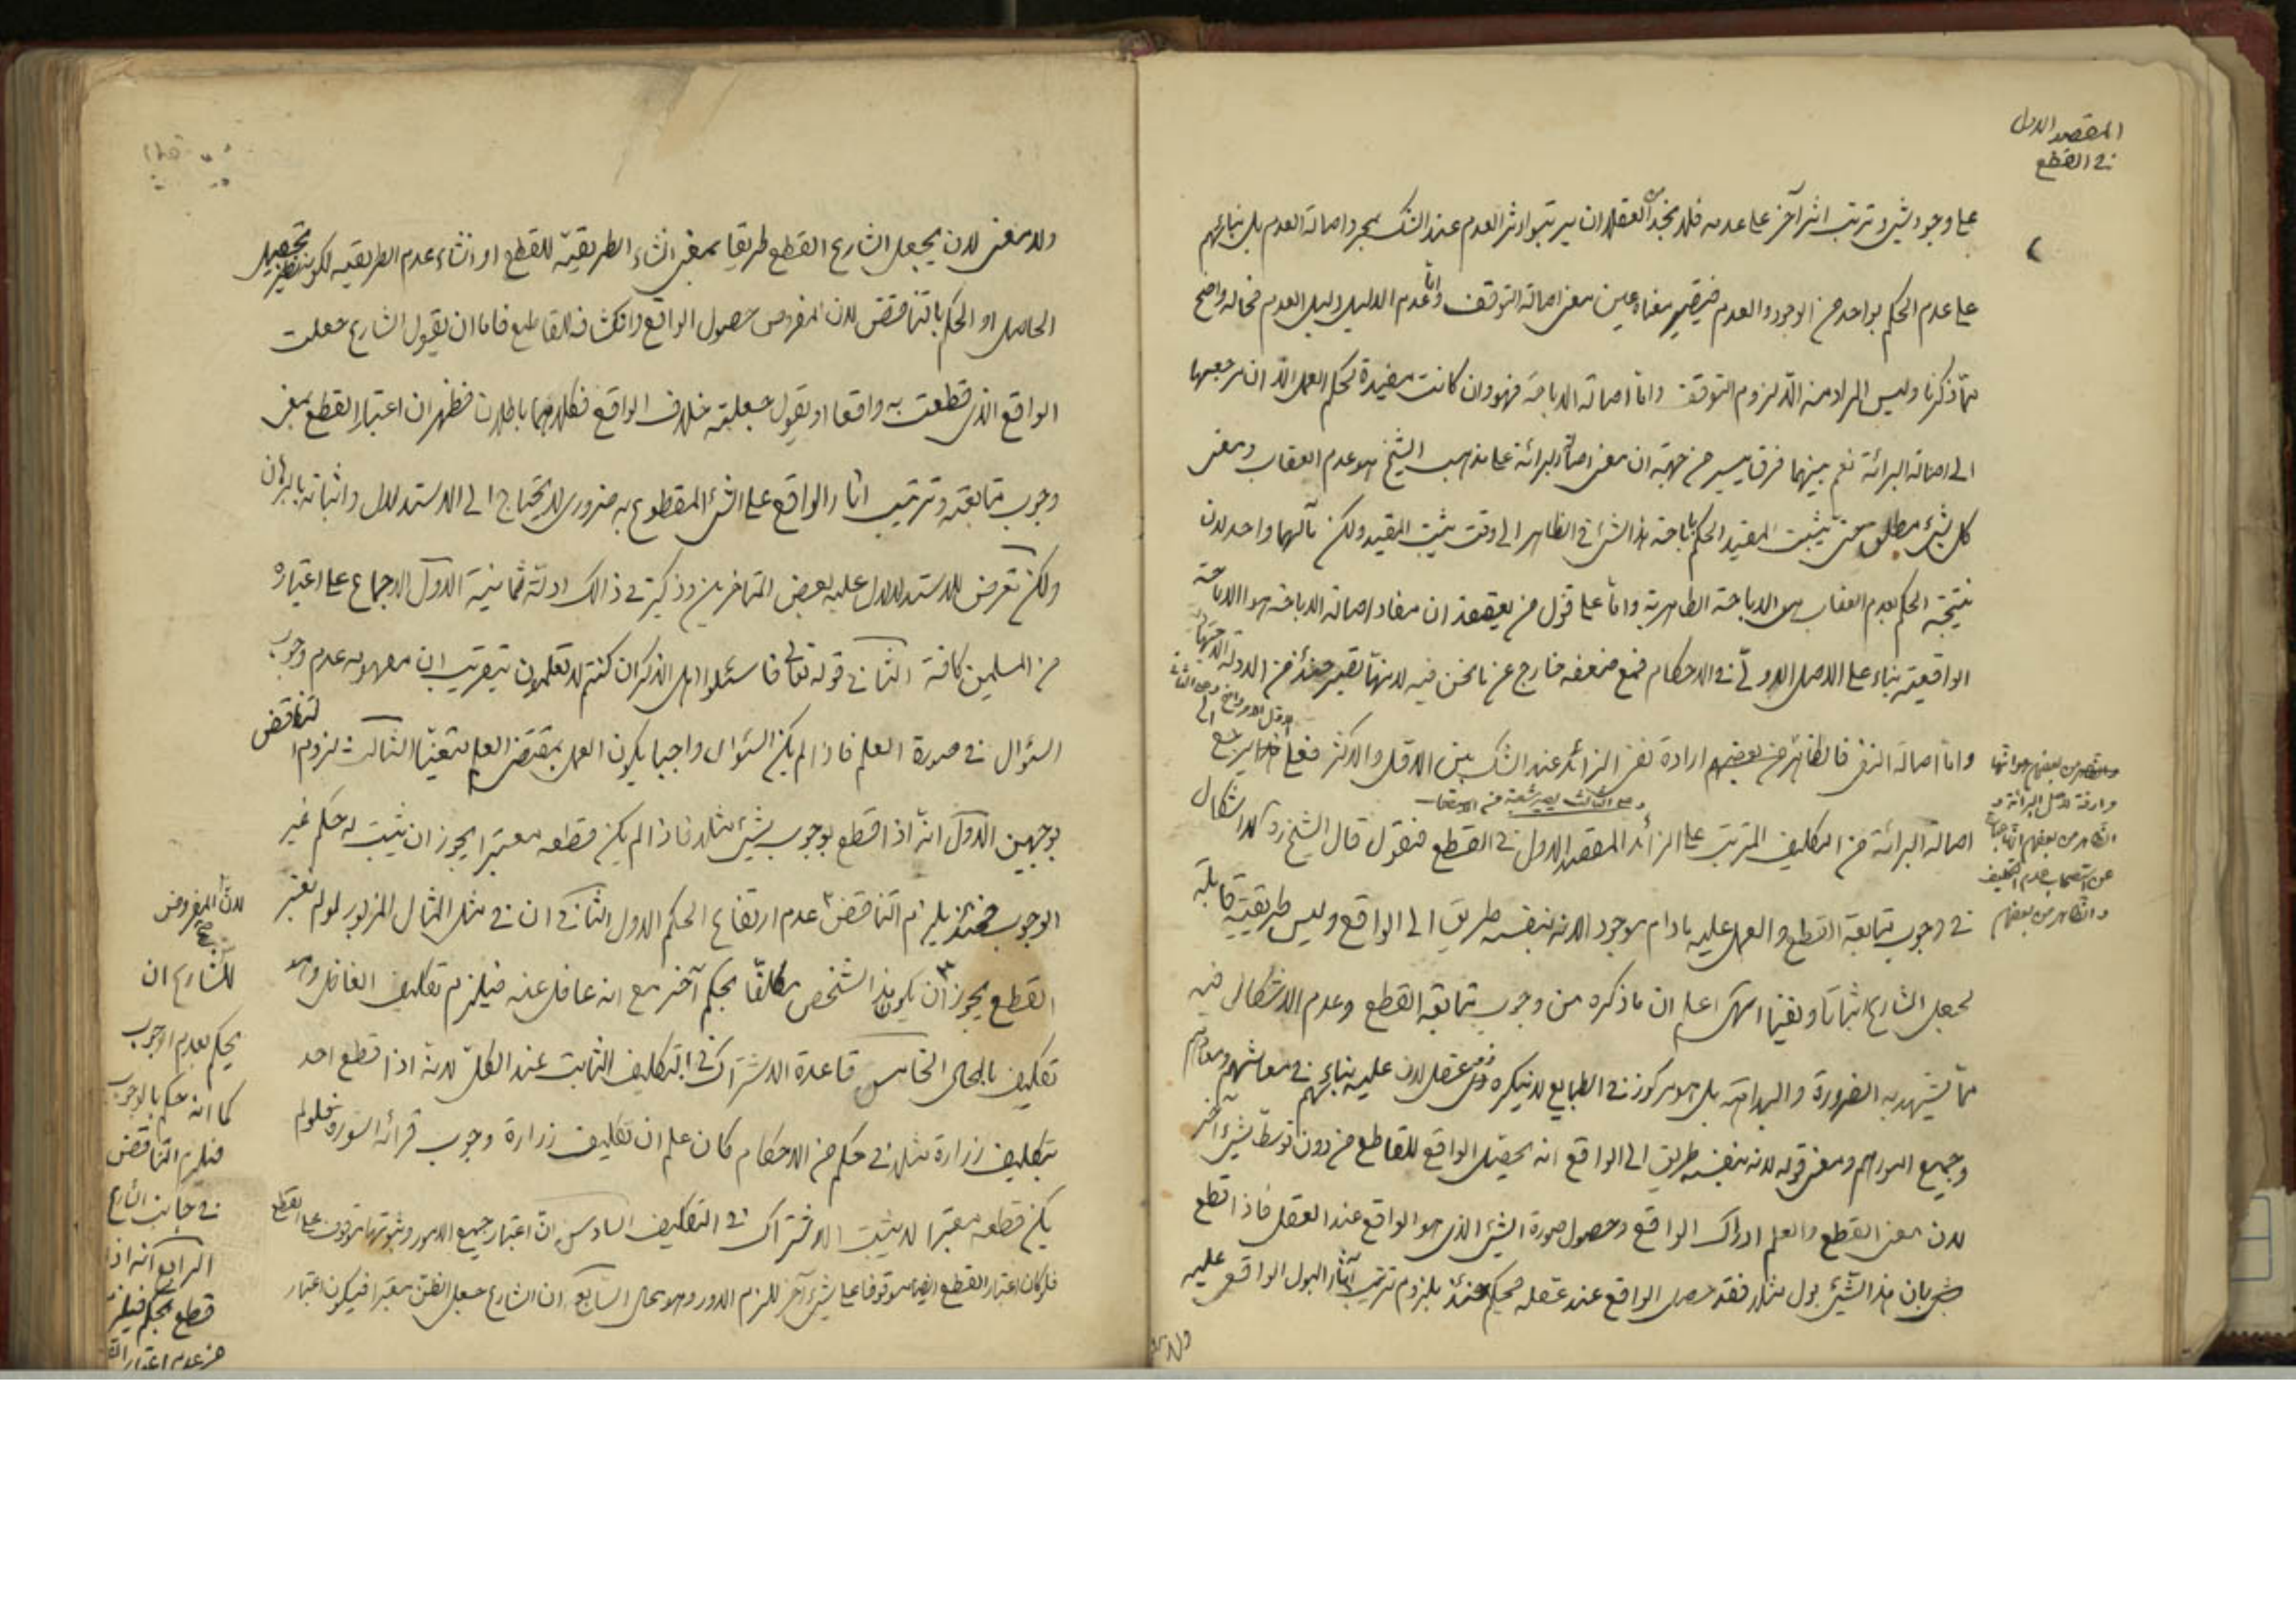 المقصد الاول
في القطع
على وجود شيء وترتب اثر آخر على عدمه فلم نجد من العقلاء ان يرتبوا اثر العدم عند الشك بمجرد اصالة العدم بل بنائهم
على عدم الحكم بواحد من الوجود والعدم فيصير معناه عين معنى اصالة التوقف واما عدم الدليل دليل العدم فحاله واضح
مما ذكرنا وليس المراد منه الا لزوم التوقف واما اصالة الاباحة فهو وان كانت مفيدة لحكم العمل الا ان مرجعها
الى اصالة البرائة نعم بينهما فرق يسير من جهة ان معنى اصالة البرائة على مذهب الشيخ هو عدم العقاب ومعنى
كل شيء مطلق حتى يثبت المقيد الحكم باباحة هذا الشيء في الظاهر الى وقت يثبت المقيد ولكن مآلهما واحد لان
نتيجة الحكم بعدم العقاب هو الاباحة الظاهرية واما على قول من يعتقد ان مفاد اصالة الاباحة هو الاباحة
الواقعية بناء على الاصل الاولي في الاحكام فمع ضعفه خارج عن ما نحن فيه لانها تصير حينئذ من الادلة الاجتهادية
واما اصالة النفي فالظاهر من بعضهم ارادة نفي الزائد عند الشك بين الاقل والاكثر فعلى هذا يرجع الى
اصالة البرائة من التكليف المترتب على الزائد المقصد الاول في القطع فنقول قال الشيخ ره لا اشكال
في وجوب متابعة القطع والعمل عليه مادام موجودا لانه بنفسه طريق الى الواقع وليس طريقيته قابلة
لجعل الشارع اثباتا ونفيا انتهى اعلم ان ما ذكره من وجوب متابعة القطع وعدم الاشكال فيه
مما يشهد به الضرورة والبداهة بل هو مركوز في الطبايع لا ينكره ذو عقل لان عليه بنائهم في معاشهم ومعادهم
وجميع امورهم ومعنى قوله لانه بنفسه طريق الى الواقع انه يحصل الواقع للقاطع من دون توسط شيء آخر
لان معنى القطع والعلم ادراك الواقع وحصول صورة الشيء الذي هو الواقع عند العقل فاذا قطع
شخص بان هذا الشيء بول مثلا فقد حصل الواقع عند عقله فيحكم حينئذ بلزوم ترتيب آثار البول الواقعي عليه
والظاهر من بعضهم
مرادفة لاصل البرائة و
الظاهر من بعضهم انها عبارة
عن استصحاب عدم التكليف
والظاهر من بعضهم
ولا معنى لان يجعل الشارع القطع طريقا بمعنى انشاء الطريقية للقطع او انشاء عدم الطريقية لكونه نظير تحصيل
الحاصل او الحكم بالتناقض لان المفروض حصول الواقع وانكشافه للقاطع فاما ان يقول الشارع جعلت
الواقع الذي قطعت به واقعا او يقول جعلته خلاف الواقع فكلاهما باطلان فظهر ان اعتبار القطع بمعنى
وجوب متابعته وترتيب اثار الواقع على الشيء المقطوع به ضروري لا يحتاج الى الاستدلال واثباته بالبرهان
ولكن تعرض للاستدلال عليه بعض المتاخرين وذكر في ذالك ادلة ثمانية الاول الاجماع على اعتباره
من المسلمين كافة الثاني قوله تعالى فاسئلوا اهل الذكر ان كنتم لا تعلمون بتقريب ان مفهومه عدم وجوب
السؤال في صورة العلم فاذا لم يكن السؤال واجبا يكون العمل بمقتضى العلم متعينا الثالث لزوم التناقض
بوجهين الاول انه اذا قطع بوجوب شيء مثلا فاذا لم يكن قطعه معتبرا يجوز ان يثبت له حكم غير
الوجوب فحينئذ يلزم التناقض عدم ارتفاع الحكم الاول الثاني ان في مثل المثال المزبور لو لم نعتبر
القطع يجوز ان يكون هذا الشخص مكلفا بحكم آخر مع انه غافل عنه فيلزم تكليف الغافل وهو
تكليف بالمحال الخامس قاعدة الاشتراك في التكليف الثابت عند الكل لانه اذا قطع احد
بتكليف زرارة مثلا في حكم من الاحكام كان علم ان تكليف زرارة وجوب قرائة السورة فلو لم
يكن قطعه معتبرا لا يثبت الاشتراك في التكليف السادس ان اعتبار جميع الامور وثبوتها موقوف على القطع
فلو كان اعتبار القطع ايضا موقوفا على شيء آخر للزم الدور وهو محال السابع ان الشارع جعل الظن معتبرا فيكون اعتبار
لان المفروض
للشارع ان
يحكم بعدم الوجوب
كما انه حكم بالوجوب
فيلزم التناقض
في جانب الشارع
الرابع انه اذا
قطع بحكم فيلزم